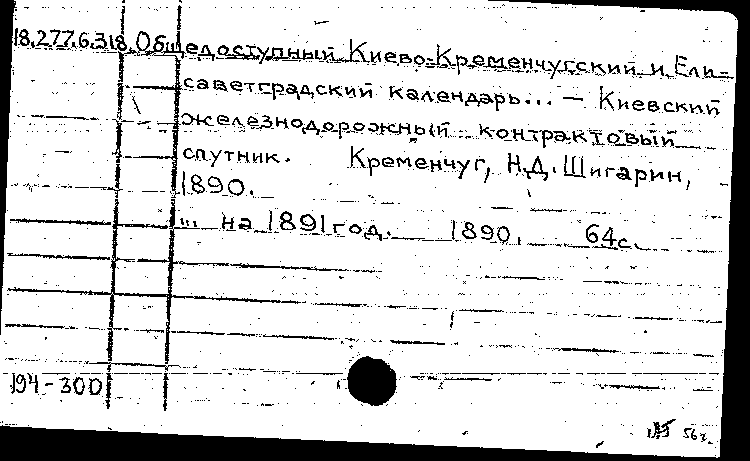 18.277.6.318. Общедоступный Киево-Кременчугский и Ели-
саветградский календарь... — Киевский
железнодорожный контрактовый
спутник. Кременчуг, Н.Д. Шигарин,
1890.
... на 1891 год. 1890. 64с.
194-300
56г.